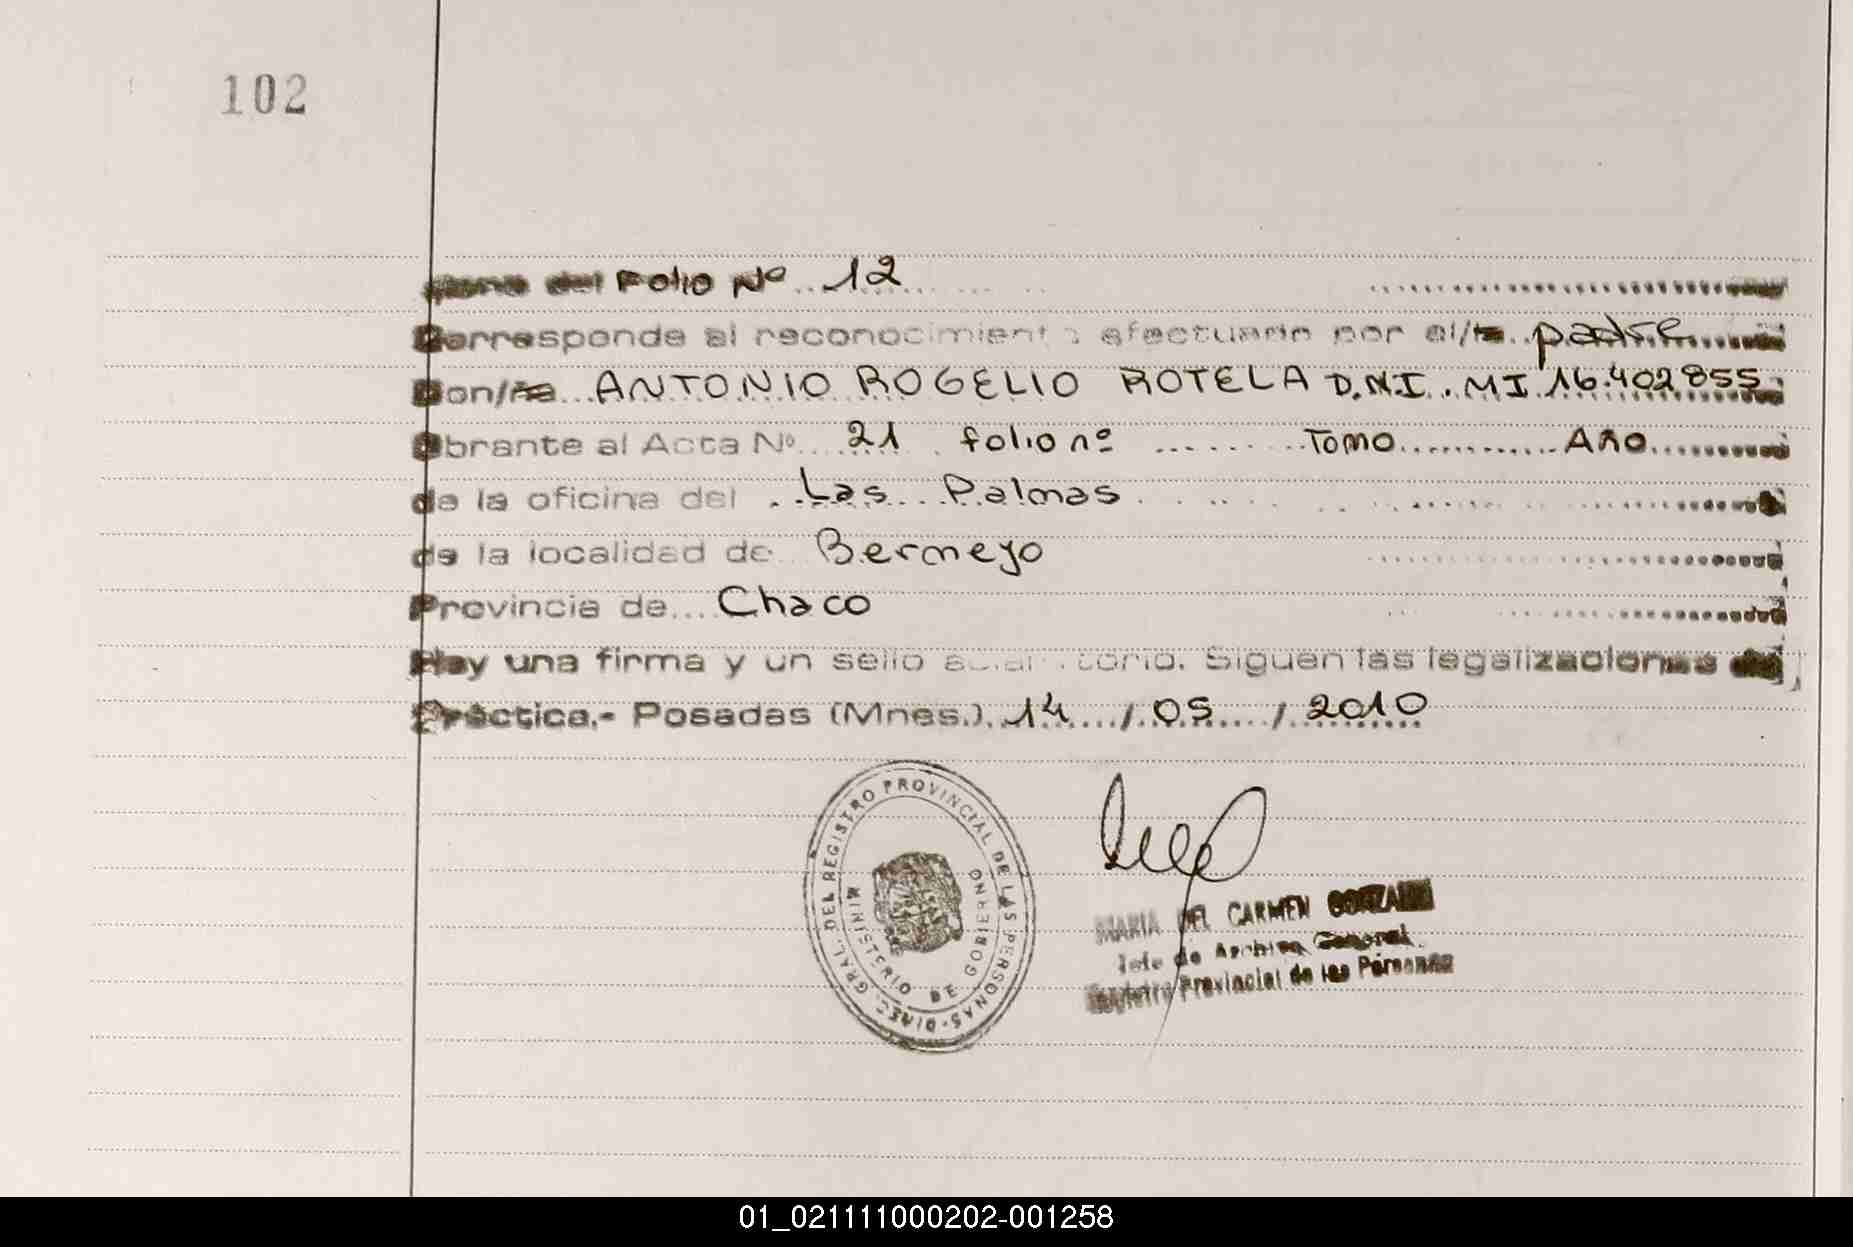 102
del Folio Nº 12
Corresponde al reconocimiento efectuado por el/la padre
Don/ña ANTONIO ROGELIO ROTELA D.N.I. MI 16.402855
Obrante al Acta Nº 21 folio nº Tomo Año
de la oficina del Las Palmas
de la localidad de Bermejo
Provincia de Chaco
Hay una firma y un sello aclaratorio. Siguen las legalizaciones de
Práctica.- Posadas (Mnes.) 14 / 05 / 2010
DIREC. GRAL. DEL REGISTRO PROVINCIAL DE LAS PERSONAS
MINISTERIO DE GOBIERNO
MARIA DEL CARMEN
Jefe de Archivo General
Registro Provincial de las Personas
01_021111000202-001258